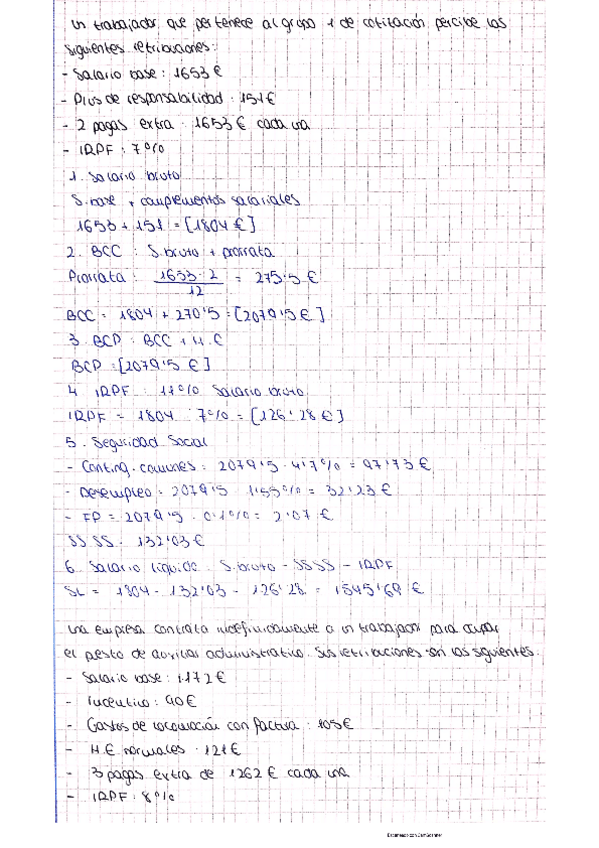 Un trabajador que pertenece al grupo 1 de cotización percibe las
siguientes retribuciones:
- Salario base: 1653 €
- Plus de responsabilidad: 151 €
- 2 pagas extra: 1653 € cada una
- IRPF: 7%
1. Salario bruto
S. base + complementos salariales
1653 + 151 = [1804 €]
2. BCC: S. bruto + prorrata
Prorrata: 1653 · 2 / 12 = 275'5 €
BCC = 1804 + 270'5 = [2079'5 €]
3. BCP: BCC + H.E
BCP = [2079'5 €]
4. IRPF: 17% Salario bruto
IRPF = 1804 · 7% = [126'28 €]
5. Seguridad Social
- Conting. comunes: 2079'5 · 4'7% = 97'73 €
- Desempleo = 2079'5 · 1'55% = 32'23 €
- FP = 2079'5 · 0'1% = 2'07 €
SSSS: 132'03 €
6. Salario líquido: S. bruto - SSSS - IRPF
SL = 1804 - 132'03 - 126'28 = 1545'69 €
Una empresa contrata indefinidamente a un trabajador para ocupar
el puesto de auxiliar administrativo. Sus retribuciones son las siguientes:
- Salario base: 1172 €
- Incentivo: 90 €
- Gastos de locomoción con factura: 105 €
- H.E normales: 121 €
- 3 pagas extra de 1262 € cada una
- IRPF: 8%
Escaneado con CamScanner